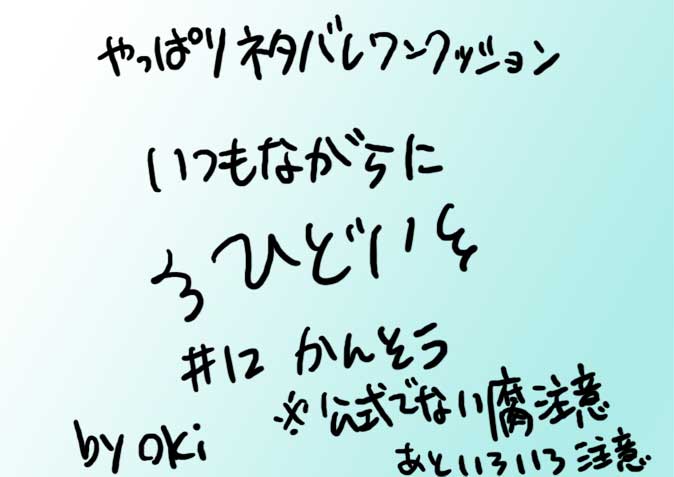 やっぱりネタバレワンクッション
いつもながらに
ひどい
#12 かんそう
※公式でない腐注意
by oki
あといろいろ注意